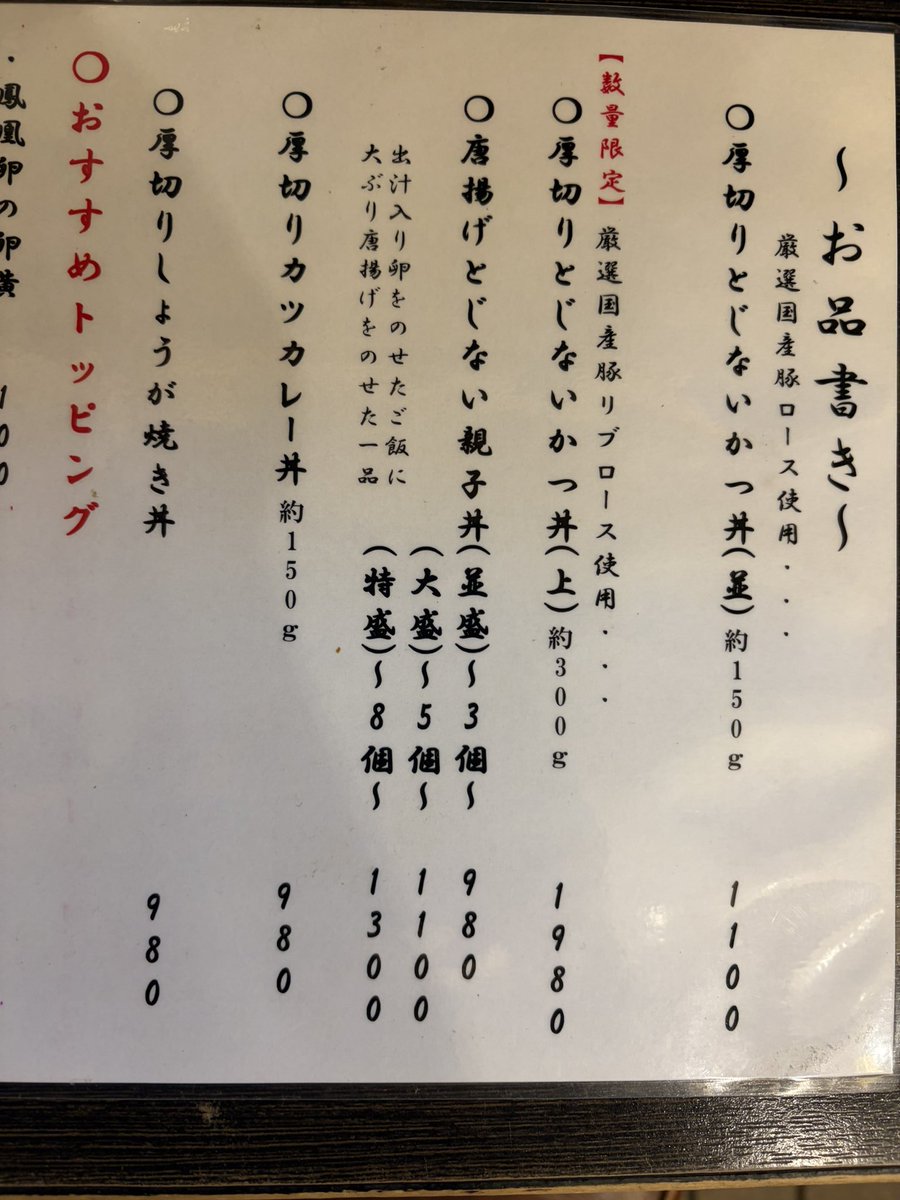 〜お品書き〜
厳選国産豚ロース使用・・・
〇厚切りとじないかつ丼(並)約150g 1100
【数量限定】厳選国産豚リブロース使用・・・
〇厚切りとじないかつ丼(上)約300g 1980
〇唐揚げとじない親子丼(並盛)〜3個〜 980
(大盛)〜5個〜 1100
(特盛)〜8個〜 1300
出汁入り卵をのせたご飯に
大ぶり唐揚げをのせた一品
〇厚切りカツカレー丼 約150g 980
〇厚切りしょうが焼き丼 980
〇おすすめトッピング
・鳳凰卵の卵黄 100